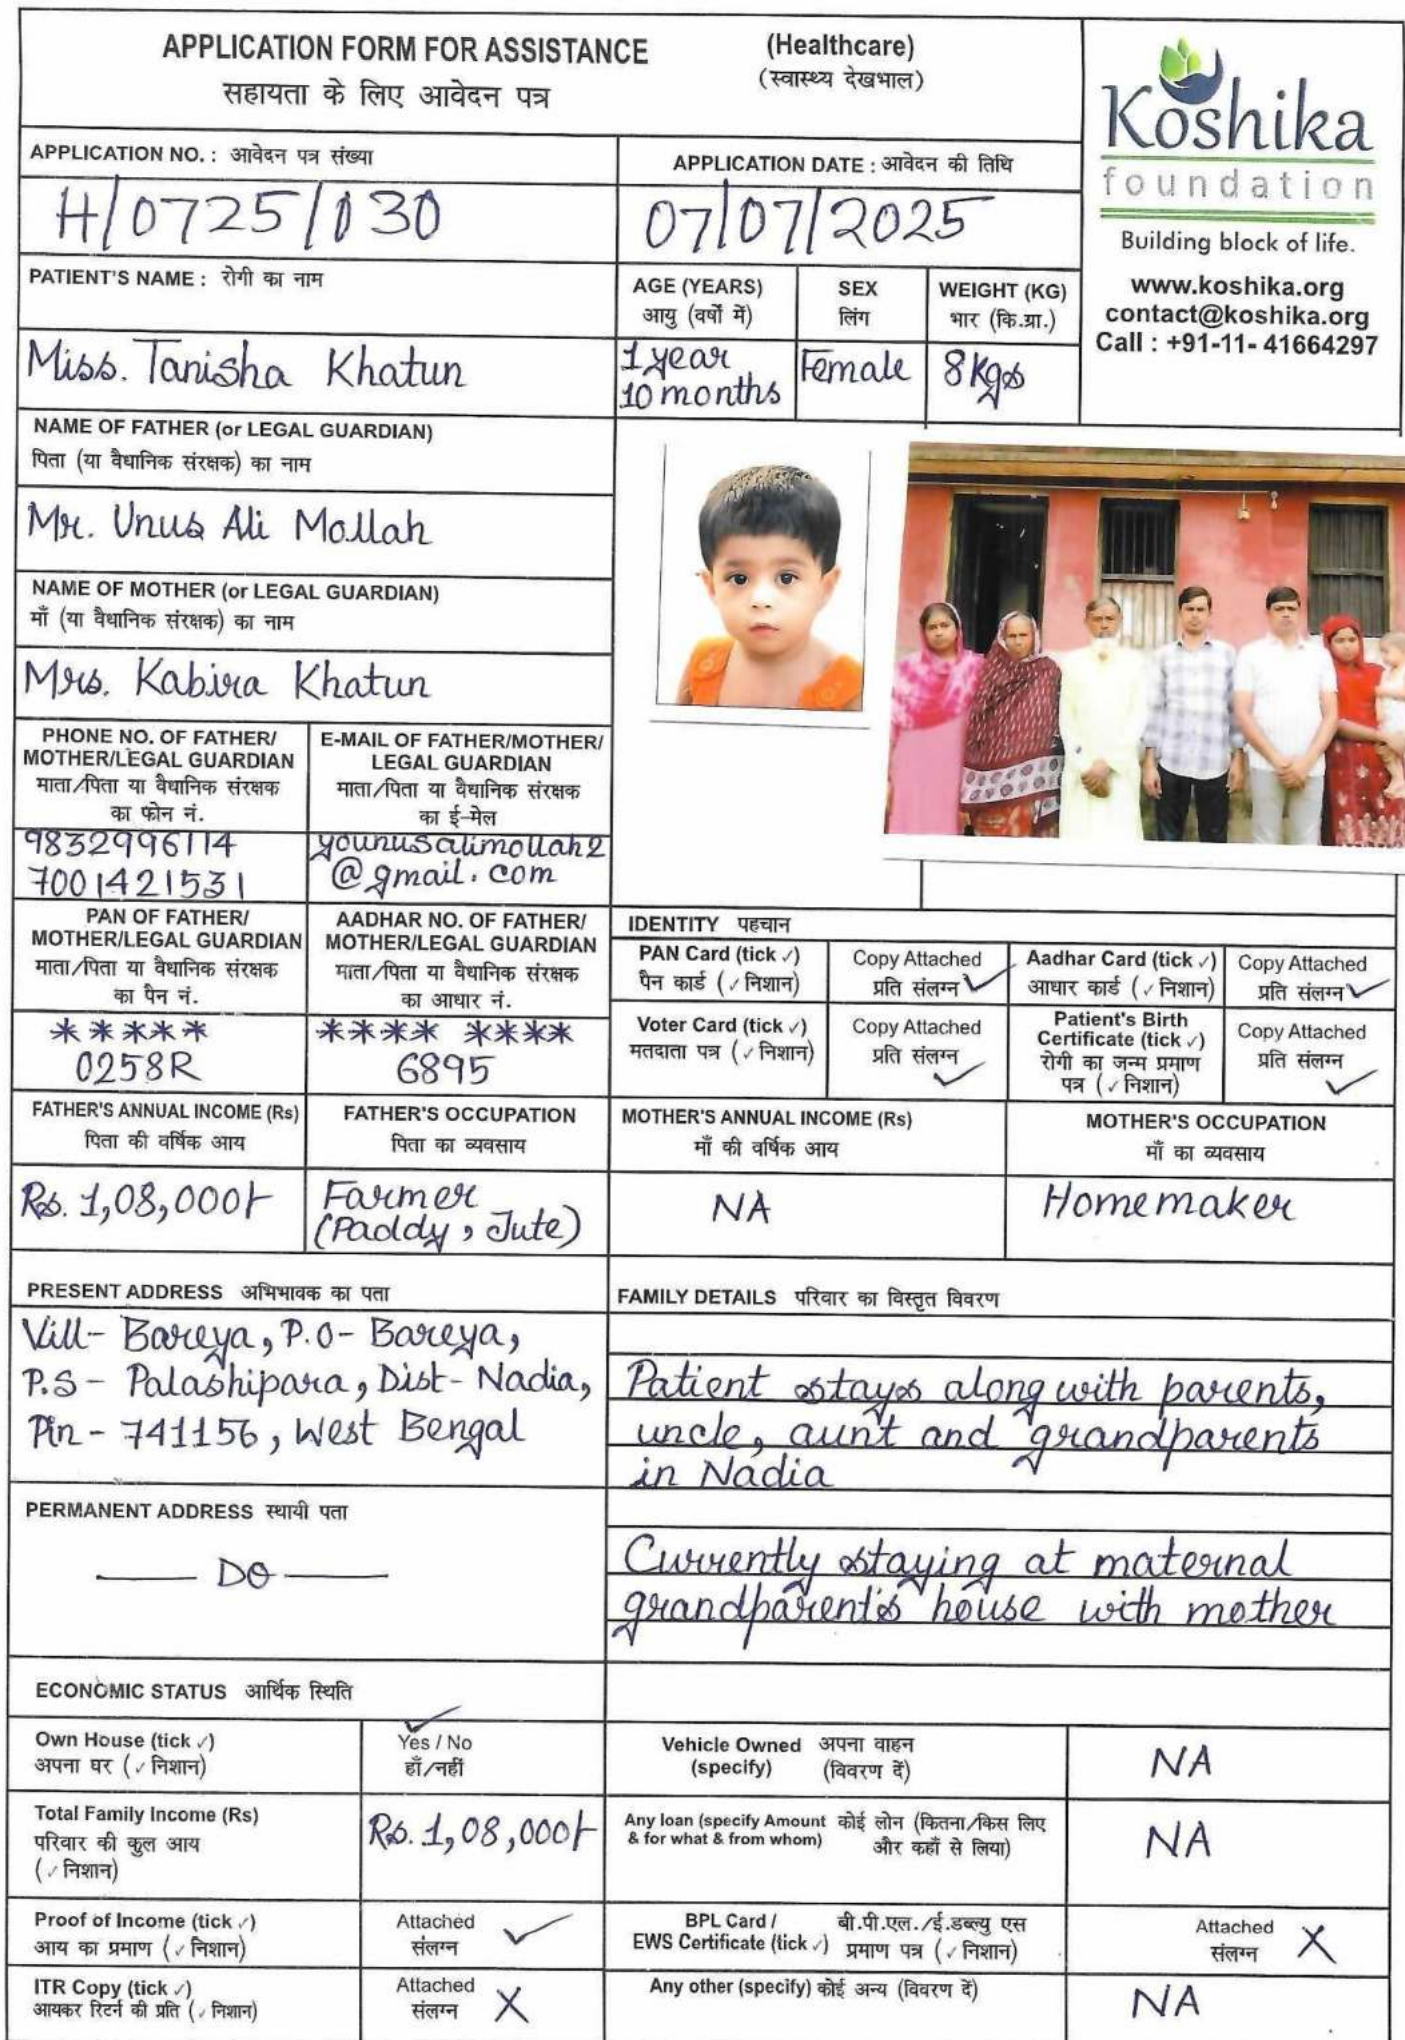 APPLICATION FORM FOR ASSISTANCE (Healthcare)
सहायता के लिए आवेदन पत्र (स्वास्थ्य देखभाल)
Koshika
foundation
Building block of life.
www.koshika.org
contact@koshika.org
Call : +91-11- 41664297
APPLICATION NO. : आवेदन पत्र संख्या
H/0725/030
APPLICATION DATE : आवेदन की तिथि
07/07/2025
PATIENT'S NAME : रोगी का नाम
Miss. Tanisha Khatun
AGE (YEARS)
आयु (वर्षों में)
1 year
10 months
SEX
लिंग
Female
WEIGHT (KG)
भार (कि.ग्रा.)
8 Kgs
NAME OF FATHER (or LEGAL GUARDIAN)
पिता (या वैधानिक संरक्षक) का नाम
Mr. Unus Ali Mollah
NAME OF MOTHER (or LEGAL GUARDIAN)
माँ (या वैधानिक संरक्षक) का नाम
Mrs. Kabira Khatun
PHONE NO. OF FATHER/
MOTHER/LEGAL GUARDIAN
माता/पिता या वैधानिक संरक्षक
का फोन नं.
9832996114
7001421531
E-MAIL OF FATHER/MOTHER/
LEGAL GUARDIAN
माता/पिता या वैधानिक संरक्षक
का ई-मेल
younusalimollah2
@gmail.com
PAN OF FATHER/
MOTHER/LEGAL GUARDIAN
माता/पिता या वैधानिक संरक्षक
का पैन नं.
*****
0258R
AADHAR NO. OF FATHER/
MOTHER/LEGAL GUARDIAN
माता/पिता या वैधानिक संरक्षक
का आधार नं.
**** ****
6895
IDENTITY पहचान
PAN Card (tick ✓)
पैन कार्ड (✓ निशान)
Copy Attached
प्रति संलग्न ✓
Aadhar Card (tick ✓)
आधार कार्ड (✓ निशान)
Copy Attached
प्रति संलग्न ✓
Voter Card (tick ✓)
मतदाता पत्र (✓ निशान)
Copy Attached
प्रति संलग्न
✓
Patient's Birth
Certificate (tick ✓)
रोगी का जन्म प्रमाण
पत्र (✓ निशान)
Copy Attached
प्रति संलग्न
✓
FATHER'S ANNUAL INCOME (Rs)
पिता की वर्षिक आय
Rs. 1,08,000/-
FATHER'S OCCUPATION
पिता का व्यवसाय
Farmer
(Paddy, Jute)
MOTHER'S ANNUAL INCOME (Rs)
माँ की वर्षिक आय
NA
MOTHER'S OCCUPATION
माँ का व्यवसाय
Homemaker
PRESENT ADDRESS अभिभावक का पता
Vill- Bareya, P.O- Bareya,
P.S - Palashipara, Dist- Nadia,
Pin - 741156, West Bengal
PERMANENT ADDRESS स्थायी पता
— DO —
FAMILY DETAILS परिवार का विस्तृत विवरण
Patient stays along with parents,
uncle, aunt and grandparents
in Nadia
Currently staying at maternal
grandparent's house with mother
ECONOMIC STATUS आर्थिक स्थिति
Own House (tick ✓)
अपना घर (✓ निशान)
✓
Yes / No
हाँ/नहीं
Vehicle Owned अपना वाहन
(specify) (विवरण दें)
NA
Total Family Income (Rs)
परिवार की कुल आय
(✓ निशान)
Rs. 1,08,000/-
Any loan (specify Amount कोई लोन (कितना/किस लिए
& for what & from whom) और कहाँ से लिया)
NA
Proof of Income (tick ✓)
आय का प्रमाण (✓ निशान)
Attached
संलग्न ✓
BPL Card / बी.पी.एल./ई.डब्ल्यु एस
EWS Certificate (tick ✓) प्रमाण पत्र (✓ निशान)
Attached
संलग्न X
ITR Copy (tick ✓)
आयकर रिटर्न की प्रति (✓ निशान)
Attached
संलग्न X
Any other (specify) कोई अन्य (विवरण दें)
NA